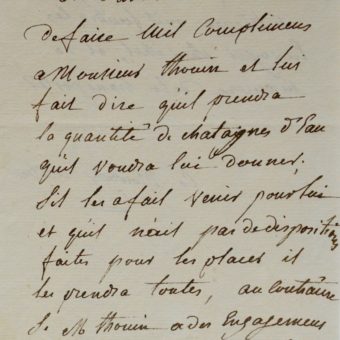 de faire mil Complimens
a Monsieur thouin et lui
fait dire qu'il prendra
la quantité de chataignes d'Eau
qu'il voudra lui donner;
S'il les a fait venir pour lui
et qu'il n'ait pas de dispositions
faites pour les placer il
les prendra toutes, au Contraire
Si M thouin a des Engagemens